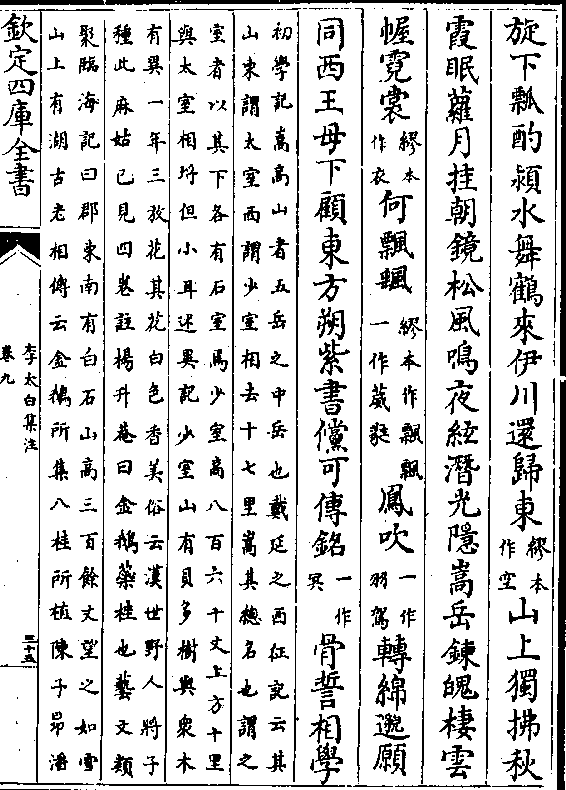 旋下瓢酌潁水舞鶴來伊川還歸東繆本作空山上獨拂秋
霞眠蘿月挂朝鏡松風鳴夜絃潛光隱嵩岳鍊魄棲雲
幄霓裳繆本作衣何飄颻繆本作飄飄一作葳蕤鳳吹一作羽駕轉綿邈願
同西王母下顧東方朔紫書儻可傳銘一作冥骨誓相學
初學記嵩高山者五岳之中岳也戴延之西征記云其
山東謂太室西謂少室相去十七里嵩其總名也謂之
室者以其下各有石室焉少室高八百六十丈上方十里
與太室相埒但小耳述異記少室山有貝多樹與衆木
有異一年三放花其花白色香美俗云漢世野人將子
種此麻姑已見四卷註楊升菴曰金鵝蘂桂也藝文類
聚臨海記曰郡東南有白石山高三百餘丈望之如雪
山上有湖古老相傳云金鵝所集八桂所植陳子昻潘
欽定四庫全書
李太白集注
卷九
三十五